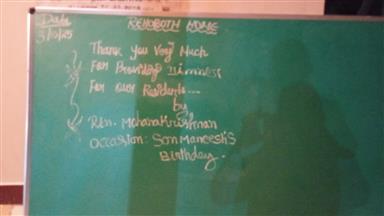 Date
REHOBOTH HOME
Thank You Very Much
For Providing Dinner
For our Residents...
by
Rtn. Mohana Krishnan
Occasion: Son Maneesh's
Birthday.